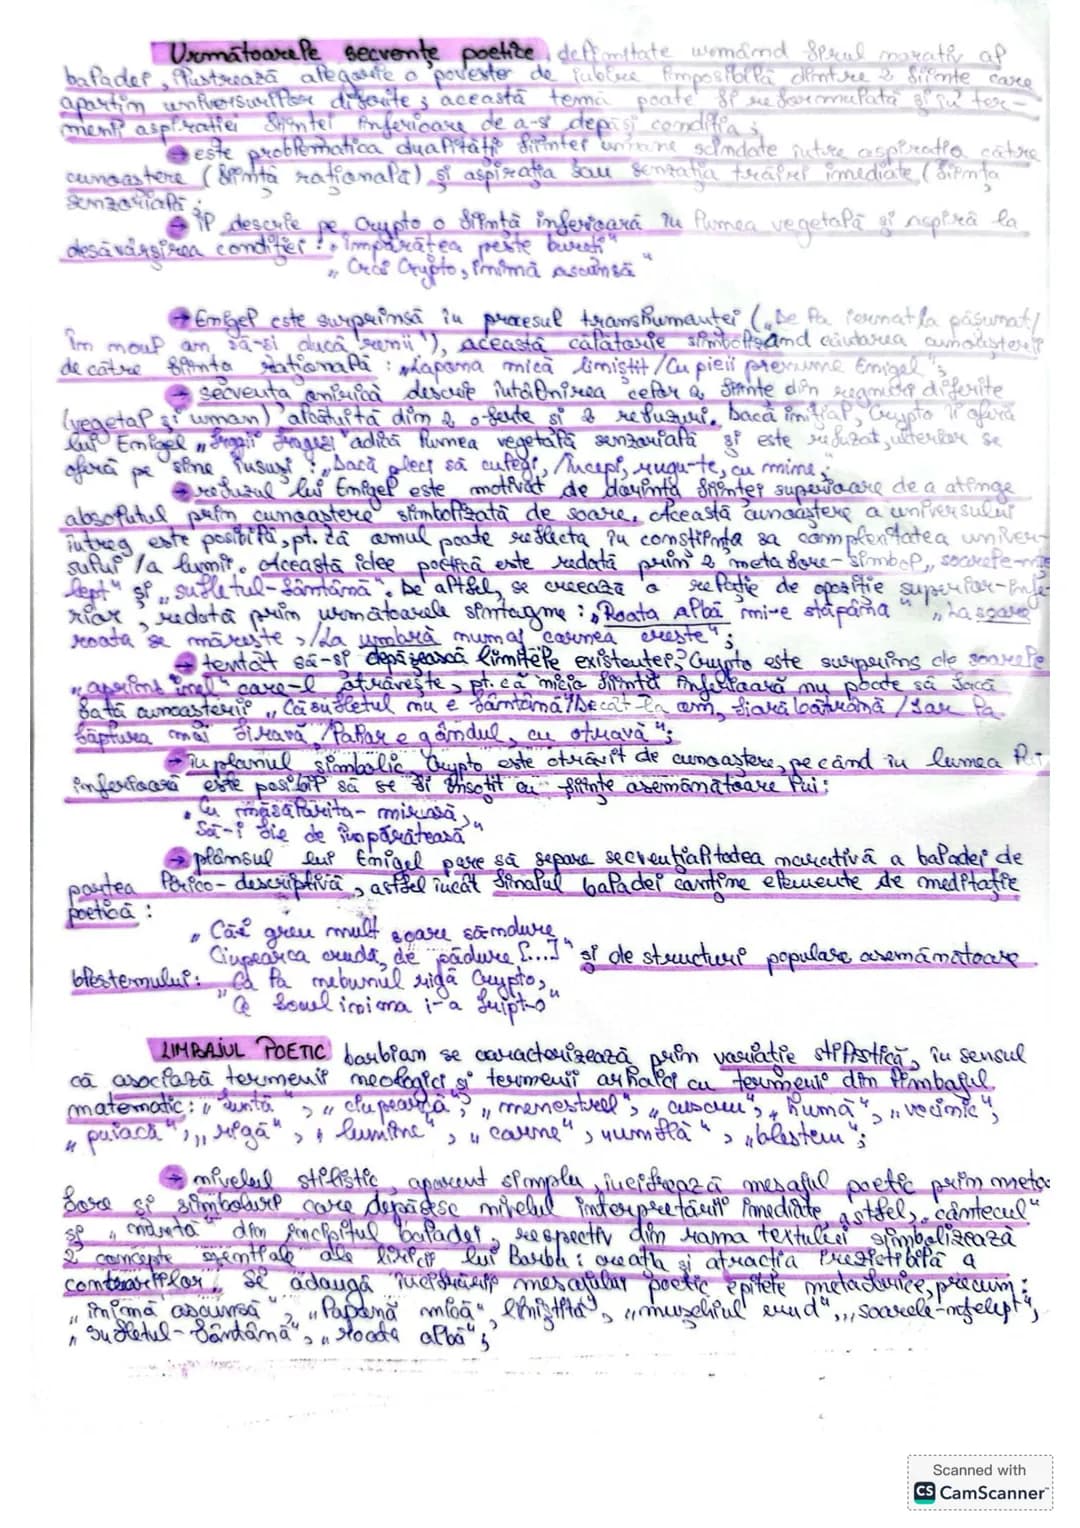 Următoarele secvențe poetice, delimitate urmând firul narativ al
baladei, ilustrează alegoric o poveste de iubire imposibilă dintre 2 ființe care
aparțin universurilor diferite; această temă poate fi reformulată și în ter-
menii aspirației ființei inferioare de a-și depăși condiția;
→ este problematica dualității ființei umane scindate între aspirația către
cunoaștere (ființă rațională) și aspirația sau senzația trăirii imediate (ființa
senzorială;
→ îl descrie pe Crypto o ființă inferioară în lumea vegetală și aspiră la
desăvârșirea condiției: „împărățea peste bureți"
„Crai Crypto, inimă ascunsă"
→ Enigel este surprinsă în procesul transhumanței („De la iernat la pășunat/
În noul an să-și ducă renii"), această călătorie simbolizând căutarea cunoașterii
de către ființa rațională: „Lapona mică liniștit/Cu pieii prenume Enigel";
→ secvența onirică descrie întâlnirea celor 2 ființe din regnuri diferite
(vegetal și uman) alcătuită din 2 oferte și 2 refuzuri. Dacă inițial, Crypto îi oferă
lui Enigel „fragii fragezi" adică lumea vegetală senzorială și este refuzat, ulterior se
oferă pe sine însuși: „Dacă pleci să culegi,/Începi, rogu-te, cu mine;
→ refuzul lui Enigel este motivat de dorința ființei superioare de a atinge
absolutul prin cunoaștere simbolizată de soare. Această cunoaștere a universului
întreg este posibilă, pt. că omul poate reflecta în conștiința sa complexitatea univer-
sului /a lumii. Această idee poetică este redată prin 2 metafore-simbol „soarele-nțe
lept" și „sufletul-fântână". De altfel, se creează o relație de opoziție superior-infe-
rior, redată prin următoarele sintagme: „Roata albă mi-e stăpâna" „La soare
roata se mărește,/La umbră numai carnea crește";
→ tentat să-și depășească limitele existenței, Crypto este surprins de soarele
„aprins inel" care-l otrăvește, pt. că nicio ființă inferioară nu poate să facă
față cunoașterii „Că sufletul nu e fântână/Decât la om, fiară bătrână /Iar la
făptura mai firavă,/Pahar e gândul, cu otravă";
→ în planul simbolic Crypto este otrăvit de cunoaștere, pe când în lumea lui
inferioară este posibil să se fi însoțit cu ființe asemănătoare lui:
„Cu măsălarița-mireasă,
Să-i fie de împărăteasă"
→ plânsul lui Enigel pare să separe secvențialitatea narativă a baladei de
partea lirico-descriptivă, astfel încât finalul baladei conține elemente de meditație
poetică:
„Căci greu mult soare să-ndure
Ciupearca crudă, de pădure [...]" și de structuri populare asemănătoare
blestemului: Ca la nebunul rigă Crypto,
"Ce focul inima i-a fript-o"
LIMBAJUL POETIC barbian se caracterizează prin variație stilistică, în sensul
că asociază termenii neologici și termenii arhaici cu termenii din limbajul
matematic: „nuntă", „ciupearcă", „menestrel", „cuscru", „humă", „vecinic",
„puiacă", „rigă", „lumine", „carne", „umflă", „blestem";
→ nivelul stilistic, aparent simplu, încifrează mesajul poetic prin meta-
fore și simboluri care depășesc nivelul interpretării imediate astfel, „cântecul"
și „nunta" din incipitul baladei, respectiv din rama textului simbolizează
2 concepte esențiale ale liricii lui Barbu: creația și atracția irezistibilă a
contrariilor. Se adaugă încifrării mesajului poetic epitete metaforice, precum:
„inimă ascunsă", „laponă mică", liniștită", „mușchiul crud", „soarele-nțelept",
„sufletul-fântână", „roata albă";
Scanned with
CS CamScanner